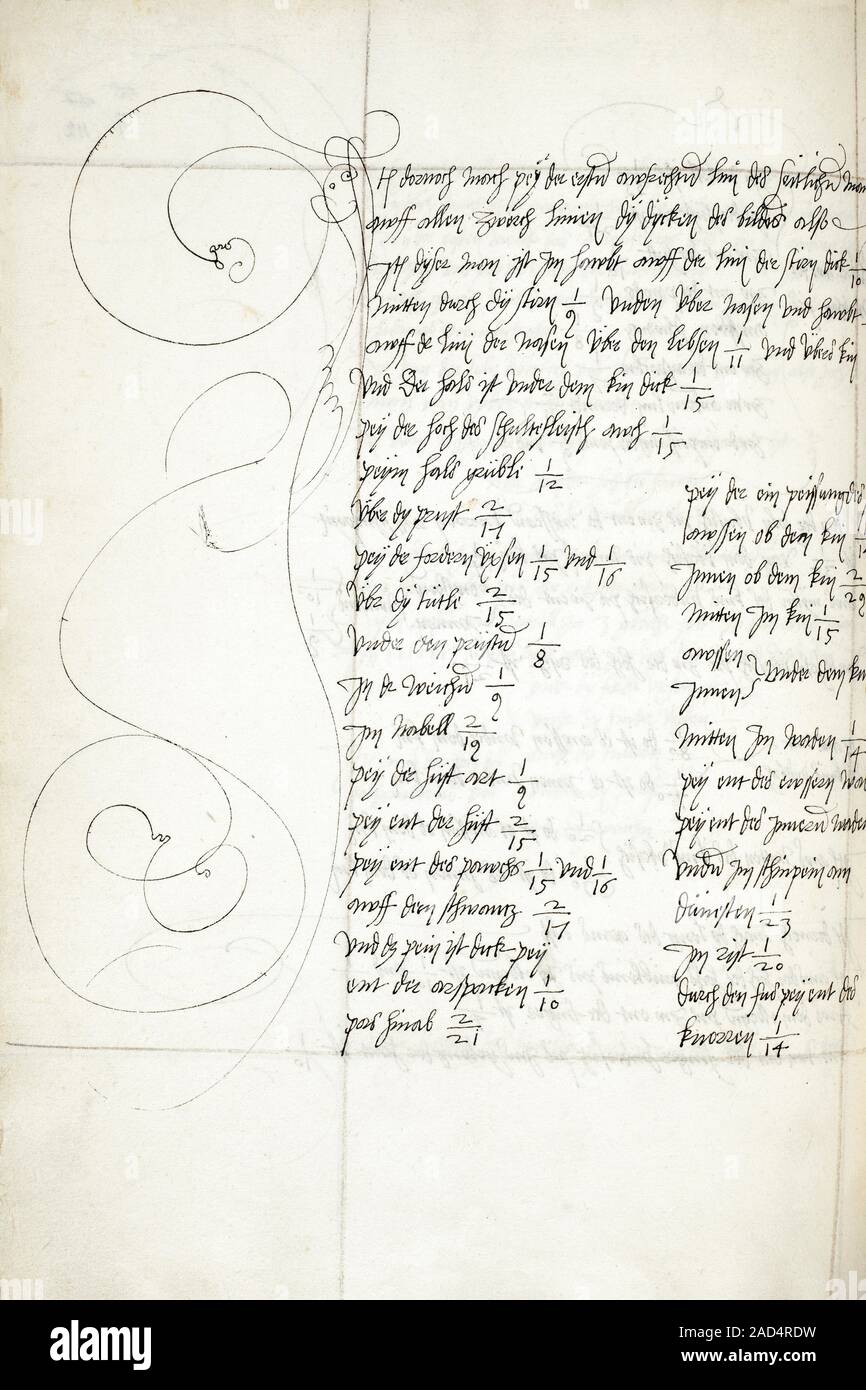 Itz dornoch mach pey der erstn awfrechtn lini des seitlichn man
awff allen zwerch linien dÿ dÿcken des bildes also
Itz dÿser man ist Im hawbt awff der lini der stirn dick 1/10
mitten durch dÿ stirn 1/9 unden Über nasen und hawbt
awff dr lini der nasen Über den lebsen 1/11 und übers kin
und Der hals ist under dem kin dick 1/15
pey der hoch des schulterfleisch awch 1/15
peym hals grüble 1/12
Über dy prust 2/17
pey dr fordern Üxsen 1/15 und 1/16
Übr dÿ tütle 2/15
under den prüstn 1/8
In dr weichn 1/9
Im nabell 2/19
pey der hüft art 1/9
pey ent der hüft 2/15
pey ent des pawchs 1/15 und 1/16
awff dem schwantz 2/17
und dz pein ist dick pey
ent der arspacken 1/10
pas hinab 2/21
pey der ein peissung des
awssen ob dem kni
Innen ob dem kni 2/29
mitten Im kni 1/15
awssen
Innen } under dem kni
mitten Im waden 1/14
pey ent des ewssern wa
pey ent des Innern waden
undn Im schinpein am
dünsten 1/23
Im rist 1/20
durch den fus pey ent des
knorren 1/14
alamy
Image ID: 2AD4RDW
www.alamy.com